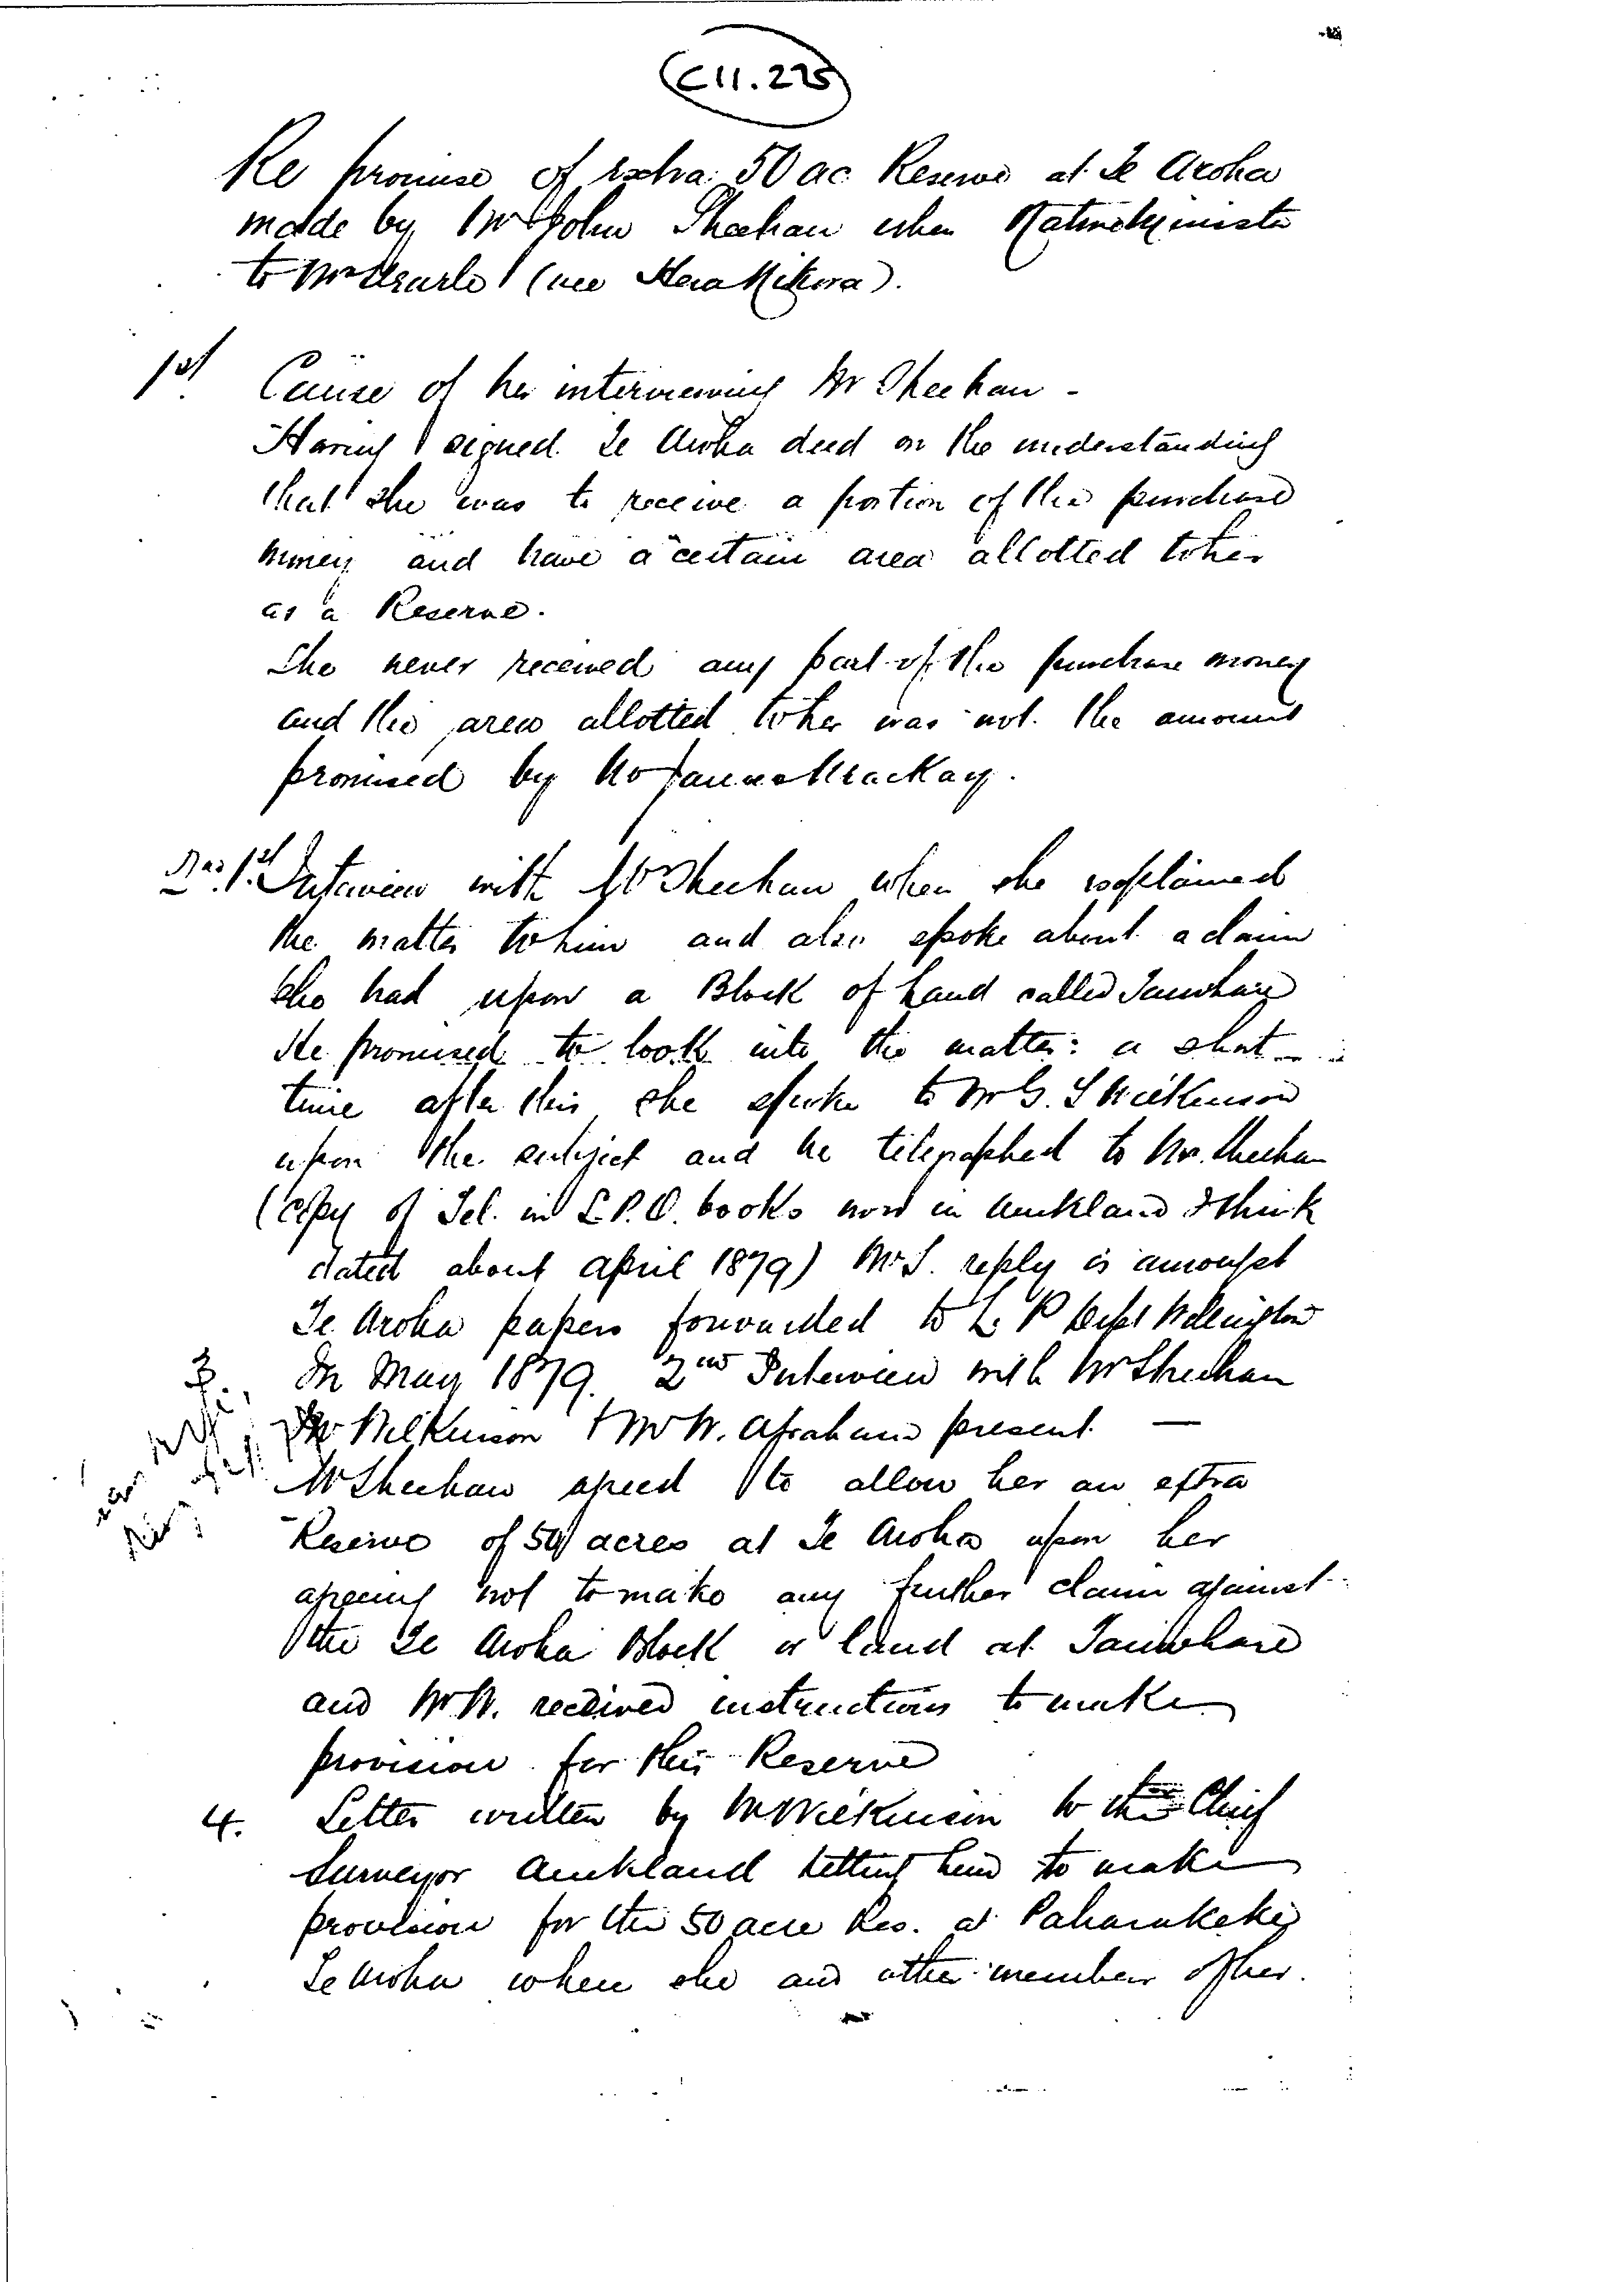 C11.225
Re promise of extra 50 ac Reserve at Te Aroha
made by Mr John Sheehan when Native Minister
to Mrs (nee Hera Mikora).
1st Cause of her interviewing Mr Sheehan -
Having signed Te Aroha deed on the understanding
that she was to receive a portion of the purchase
money and have a certain area allotted to her
as a Reserve.
She never received any part of the purchase money
and the area allotted to her was not the amount
promised by Mr James Mackay.
1st Interview with Mr Sheehan when she explained
the matter to him and also spoke about a claim
she had upon a Block of Land called Tauwhare
He promised to look into the matter: a short
time after this she spoke to Mr G. T Wilkinson
upon the subject and he telegraphed to Mr. Sheehan
(copy of Tel. in L.P.O. books now in Auckland I think
dated about April 1879) Mr S. reply is amongst
Te Aroha papers forwarded to L. P Dept Wellington
In May 1879. 2nd Interview with Mr Sheehan
3.
Mr Wilkinson & Mr W. Abraham present —
Mr Sheehan agreed to allow her an extra
Reserve of 50 acres at Te Aroha upon her
agreeing not to make any further claim against
the Te Aroha Block or land at Tauwhare
and Mr W. received instructions to make
provision for this Reserve
4. Letter written by Mr Wilkinson to the Chief
Surveyor Auckland telling him to make
provision for the 50 acre Res. at Paharakeke
Te Aroha when she and other member of her.